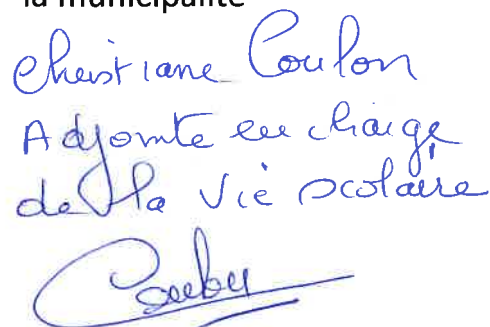 la municipalité
Christiane Coulon
Adjointe en charge
de la Vie scolaire
Coulon